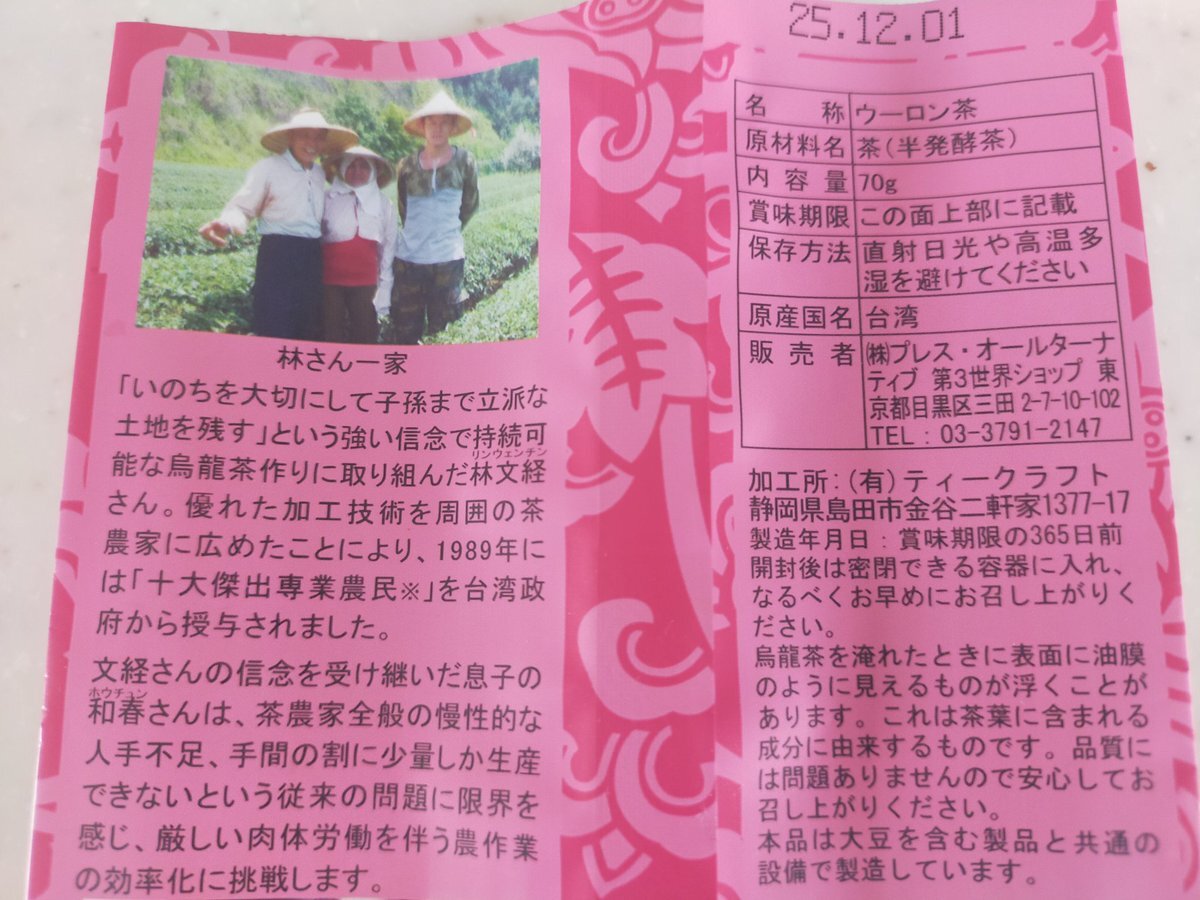 林さん一家
「いのちを大切にして子孫まで立派な
土地を残す」という強い信念で持続可
リンウェンチン
能な烏龍茶作りに取り組んだ林文経
さん。優れた加工技術を周囲の茶
農家に広めたことにより、1989年に
は「十大傑出専業農民※」を台湾政
府から授与されました。
文経さんの信念を受け継いだ息子の
ホウチュン
和春さんは、茶農家全般の慢性的な
人手不足、手間の割に少量しか生産
できないという従来の問題に限界を
感じ、厳しい肉体労働を伴う農作業
の効率化に挑戦します。
25.12.01
名称 ウーロン茶
原材料名 茶(半発酵茶)
内容量 70g
賞味期限 この面上部に記載
保存方法 直射日光や高温多
湿を避けてください
原産国名 台湾
販売者 ㈱プレス・オールターナ
ティブ 第3世界ショップ 東
京都目黒区三田 2-7-10-102
TEL : 03-3791-2147
加工所:(有)ティークラフト
静岡県島田市金谷二軒家1377-17
製造年月日:賞味期限の365日前
開封後は密閉できる容器に入れ、
なるべくお早めにお召し上がりく
ださい。
烏龍茶を淹れたときに表面に油膜
のように見えるものが浮くことが
あります。これは茶葉に含まれる
成分に由来するものです。品質に
は問題ありませんので安心してお
召し上がりください。
本品は大豆を含む製品と共通の
設備で製造しています。